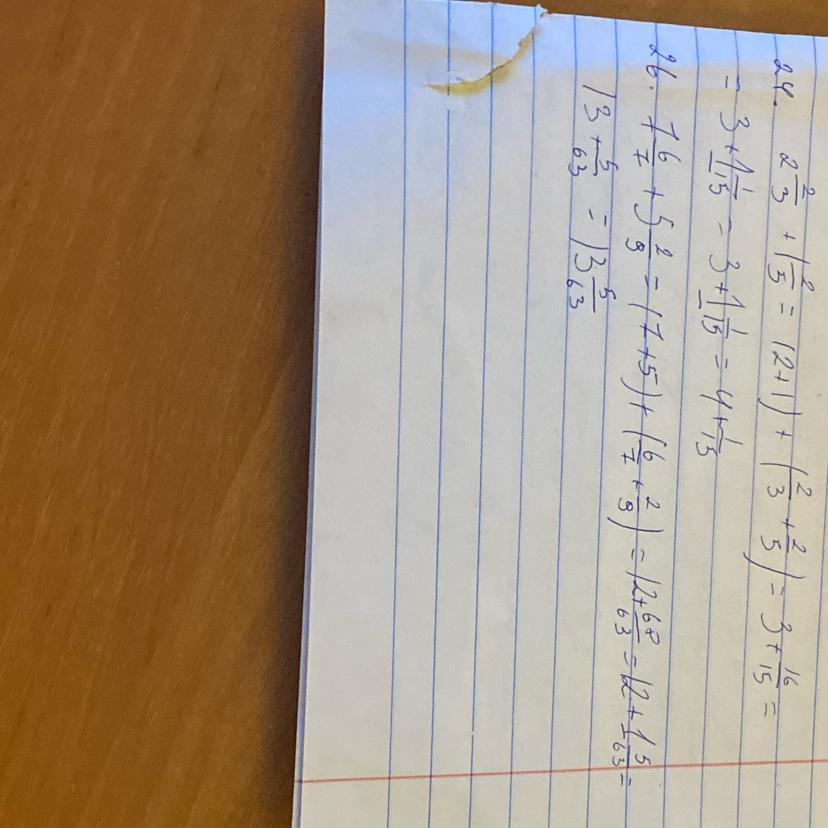 24. 2 2/3 + 1 2/5 = (2+1) + (2/3 + 2/5) = 3 + 16/15 =
= 3 + 1 1/15 = 3 + 1 1/15 = 4 + 1/15
26. 7 6/7 + 5 2/9 = (7+5) + (6/7 + 2/9) = 12 + 68/63 = 12 + 1 5/63 =
13 + 5/63 = 13 5/63